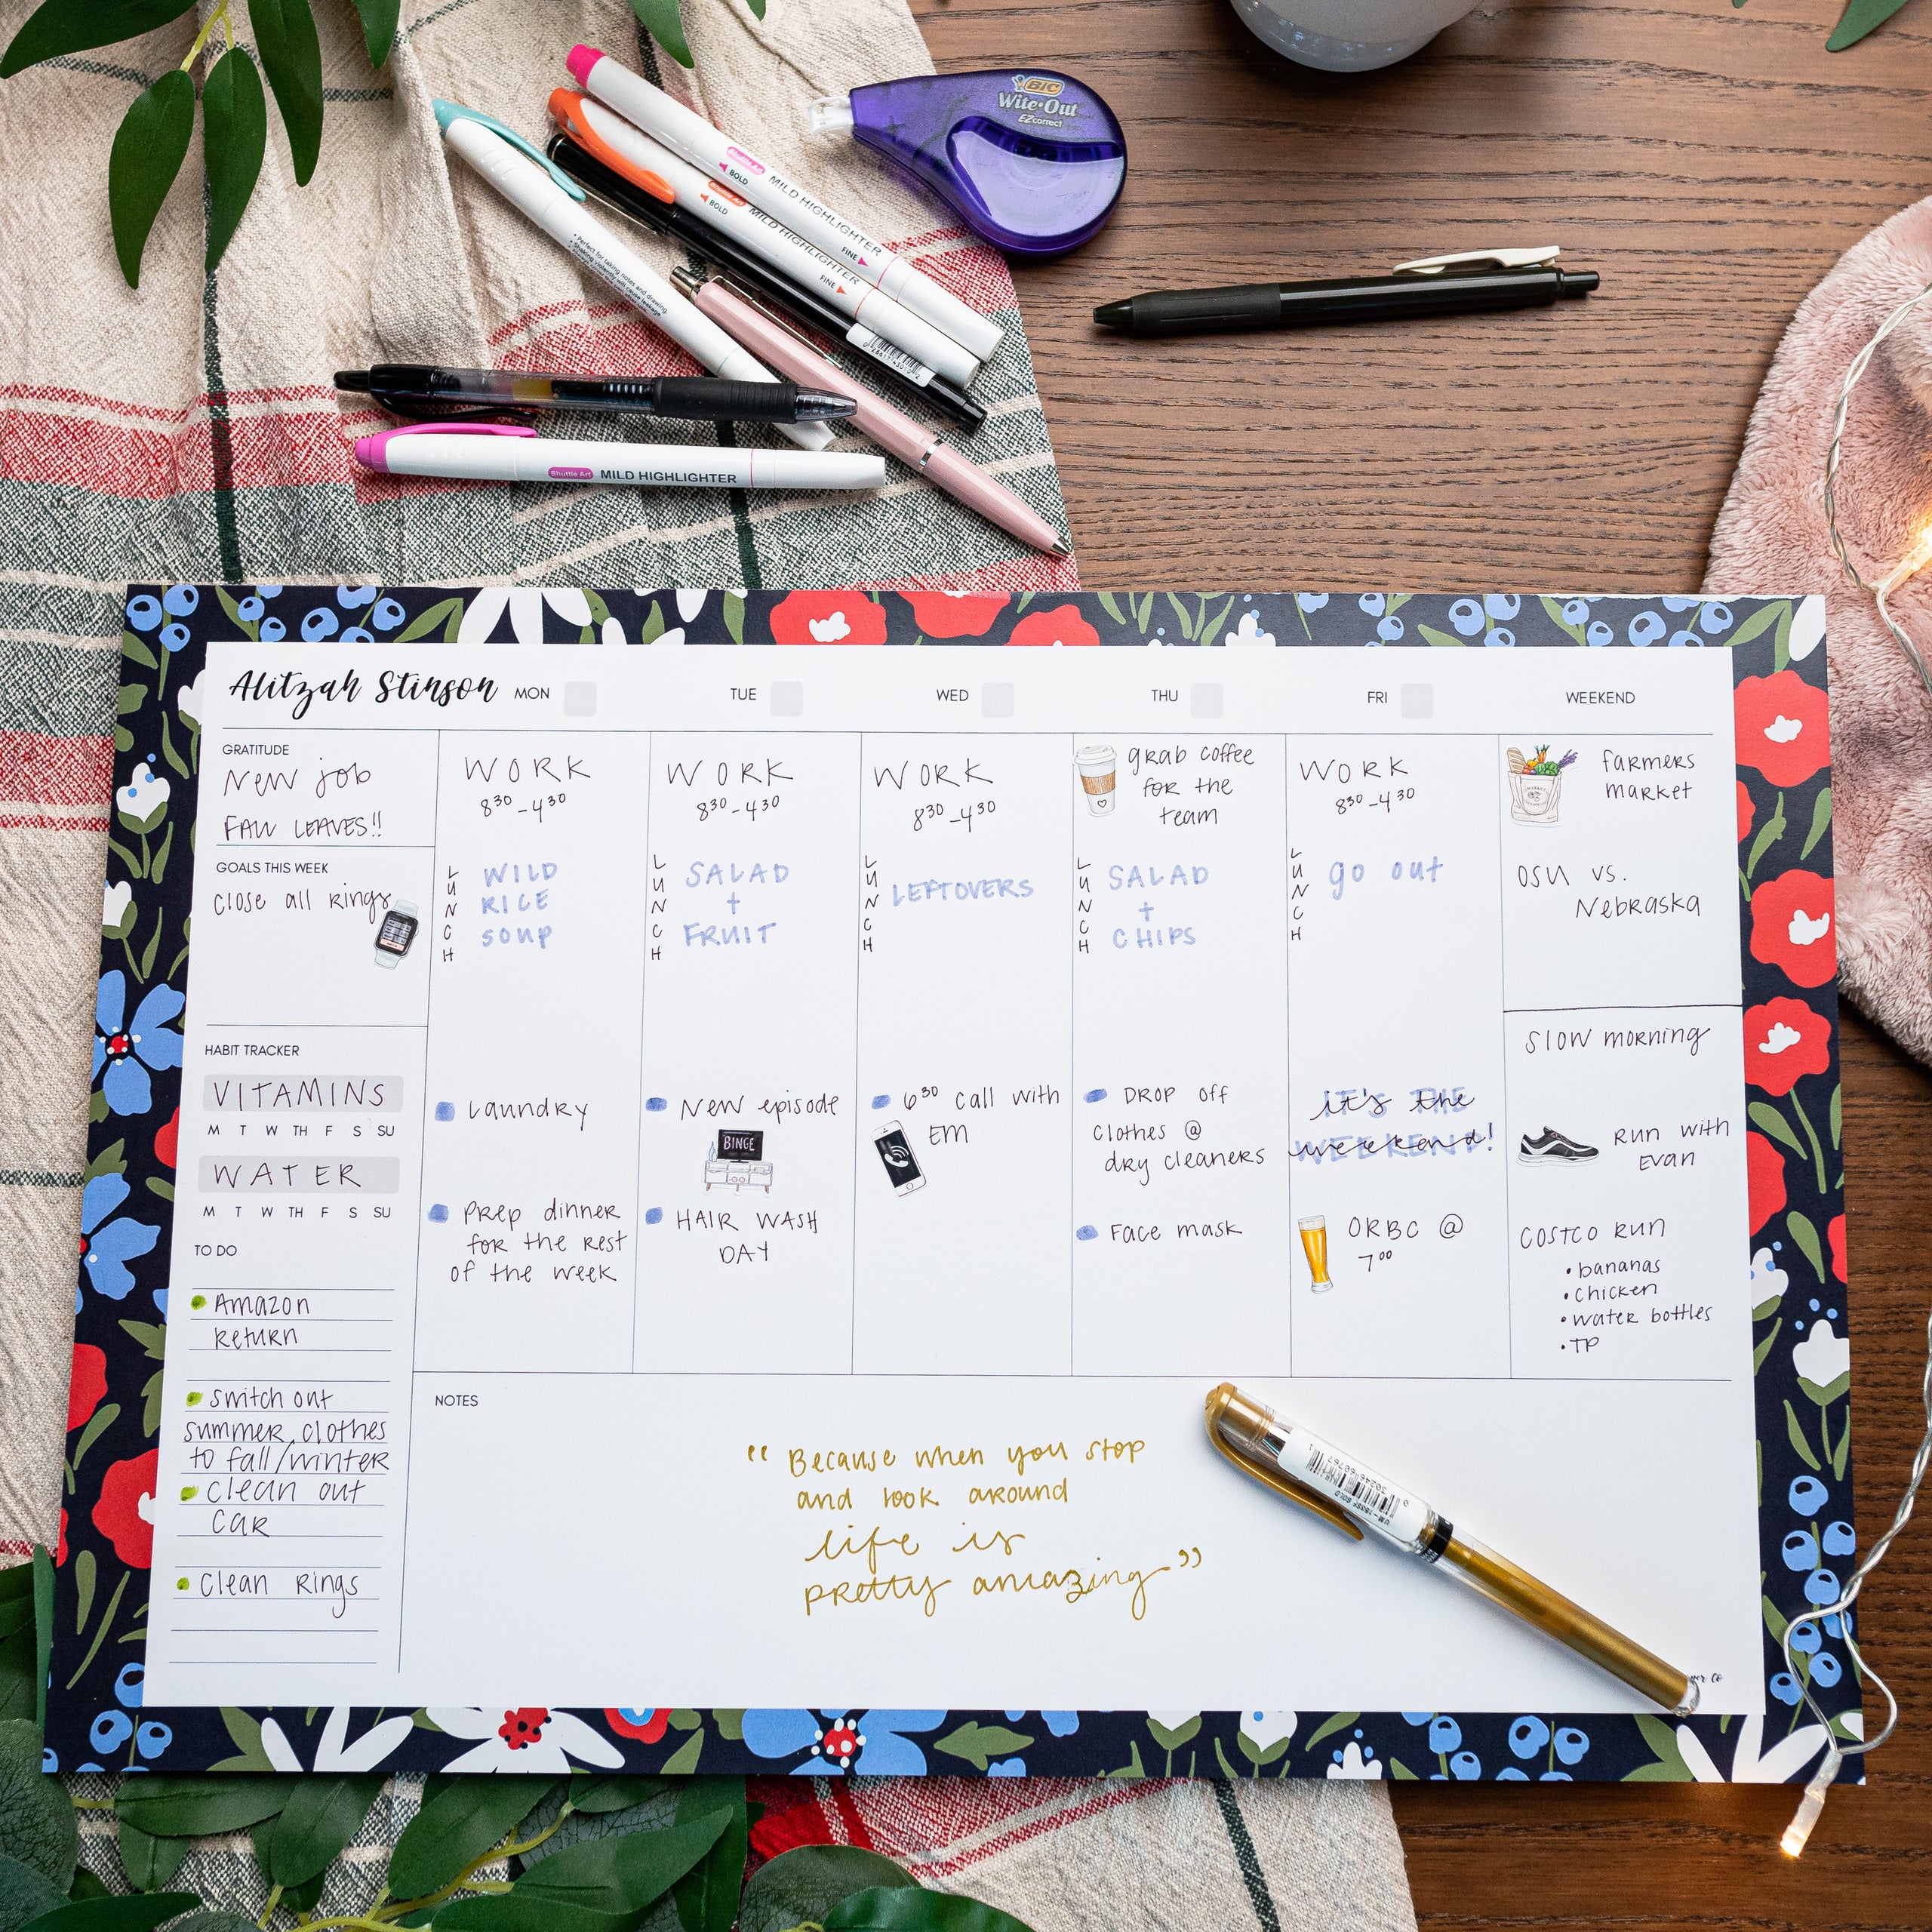 BIC
Wite·Out
EZcorrect
Shuttle Art
BOLD
MILD HIGHLIGHTER
FINE
Shuttle Art
BOLD
MILD HIGHLIGHTER
FINE
• Perfect for taking notes and drawing.
Shuttle Art MILD HIGHLIGHTER
Alitzah Stinson
MON
TUE
WED
THU
FRI
WEEKEND
GRATITUDE
New job
FALL LEAVES!!
GOALS THIS WEEK
close all rings
HABIT TRACKER
VITAMINS
M T W TH F S SU
WATER
M T W TH F S SU
TO DO
Amazon
return
switch out
summer clothes
to fall/winter
clean out
car
clean rings
WORK
8³⁰-4³⁰
LUNCH
WILD
RICE
SOUP
Laundry
Prep dinner
for the rest
of the week
WORK
8³⁰-4³⁰
LUNCH
SALAD
+
FRUIT
New episode
BINGE
HAIR WASH
DAY
WORK
8³⁰-4³⁰
LUNCH
LEFTOVERS
6³⁰ call with
EM
grab coffee
for the
team
LUNCH
SALAD
+
CHIPS
DROP off
clothes @
dry cleaners
Face mask
WORK
8³⁰-4³⁰
LUNCH
go out
it's the
weekend!
ORBC @
7⁰⁰
MARKET
farmers
market
OSU vs.
Nebraska
slow morning
Run with
Evan
COSTCO RUN
• bananas
• chicken
• water bottles
• TP
NOTES
"Because when you stop
and look around
life is
pretty amazing"